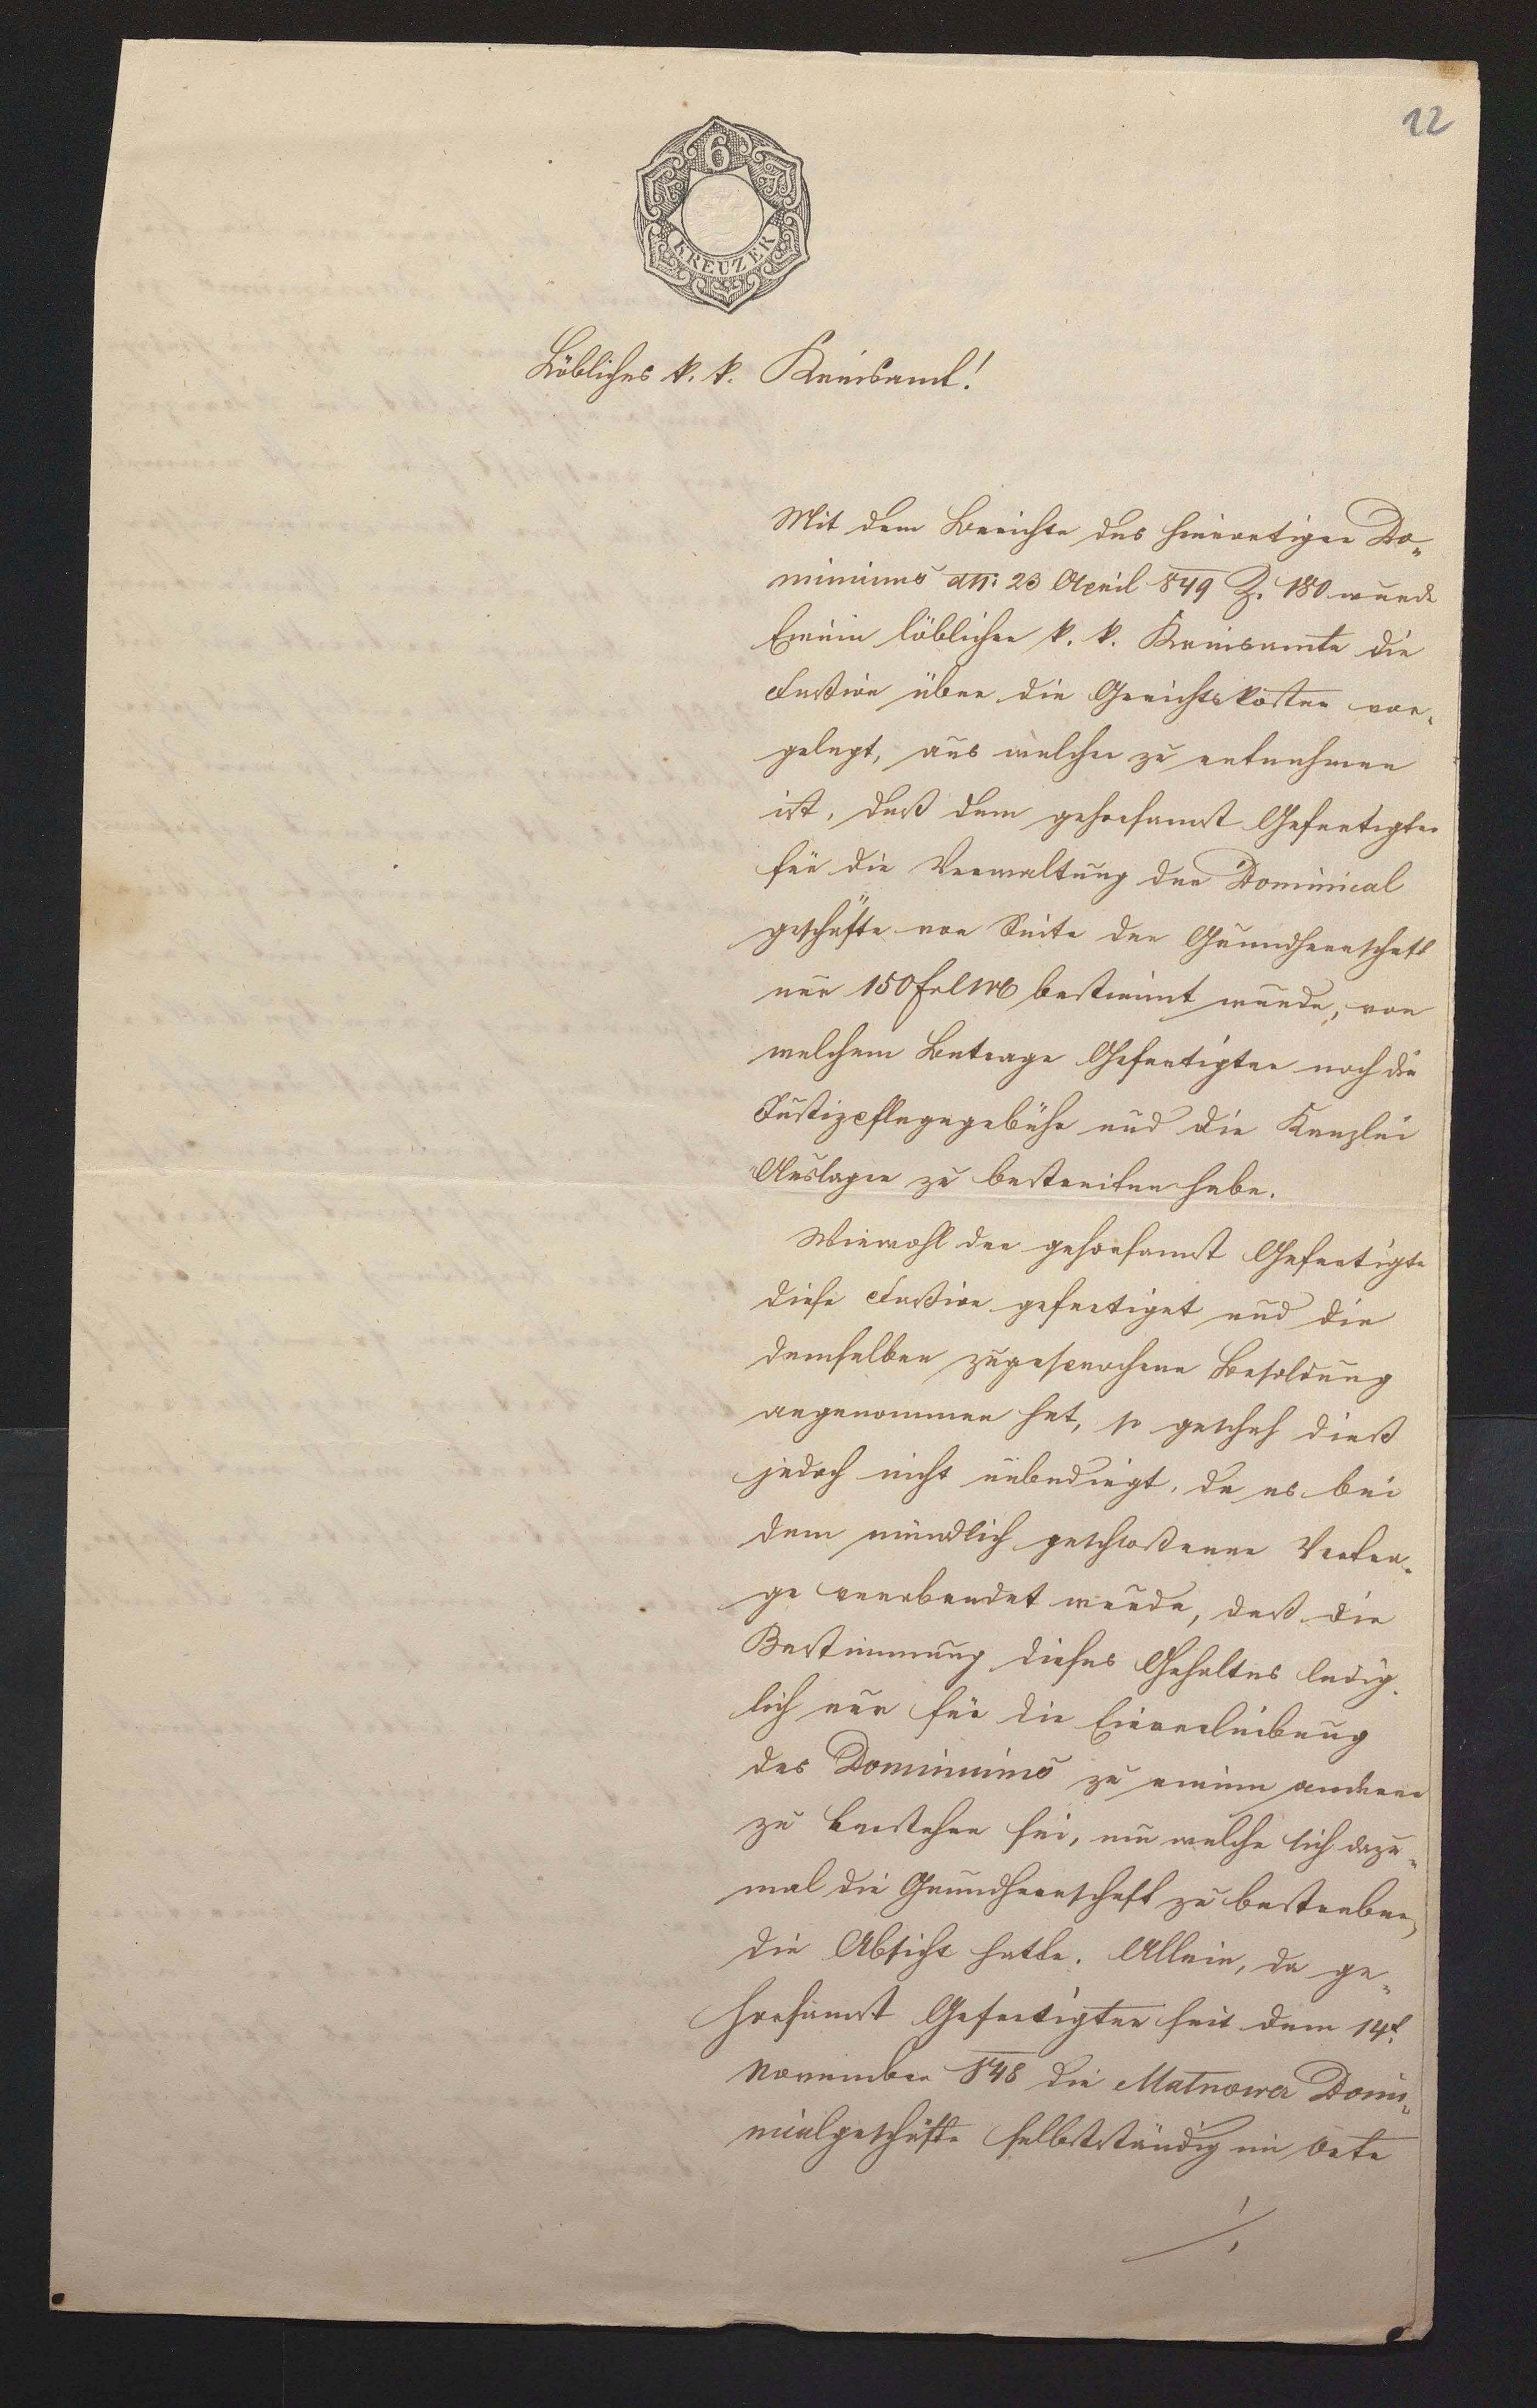 12
6
KREUZER
Löbliches k. k. Kreisamt!
Mit dem Berichte des hierortigen Do„
miniums ddt: 23 April 849 Z. 180 wurde
Einem löblichen k. k. Kreisamte die
Fassion über die Gerichtskosten vor„
gelegt, aus welcher zu entnehmen
ist, daß dem gehorsamst Gefertigten
für die Verwaltung der Dominical
geschäfte von Seite der Grundherrschaft
nur 150 f bestimmt wurde, von
welchem Betrage Gefertigter noch die
Justizpflegegebühr und die Kanzlei
Auslagen zu bestreiten habe.
Wiewohl der gehorsamst Gefertigte
diese Fassion gefertiget und die
demselben zugesprochene Besoldung
angenommen hat, so geschah dieß
jedoch nicht unbedingt, da es bei
dem mündlich geschlossenen Vertra„
ge verabredet wurde, daß die
Bestimmung dieses Gehaltes ledig„
lich nur für die Einverleibung
des Dominiums zu einem anderen
zu bestehen sei, um welche sich dazu„
mal die Grundherrschaft zu bestreben,
die Absicht hatte. Allein, da ge„
horsamst Gefertigter seit dem 14t.
November 848 die Malnower Domi„
nicalgeschäfte selbstständig im Orte